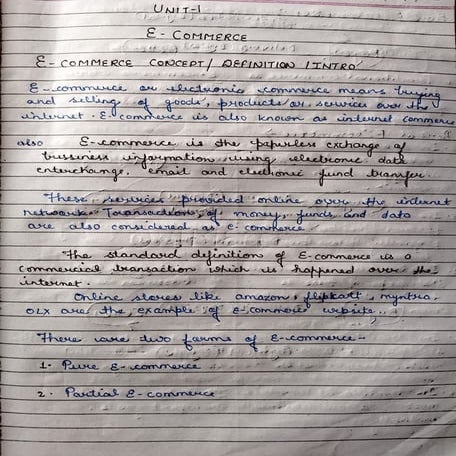 UNIT-1
E-COMMERCE
E-COMMERCE CONCEPT/ DEFINITION /INTRO
E-commerce or electronic commerce means buying
and selling of goods, products or services over the
internet. E-commerce is also known as internet commerce
also E-commerce is the paperless exchange of
bussiness information using electronic data
enterchange, email and electronic fund transfer.
These services provided online over the internet
network. Transaction of money, funds and data
are also considered as e-commerce
The standard definition of E-commerce is a
commercial transaction which is happened over the
internet.
Online stores like amazon, flipkart, myntra,
OLX are the example of e-commerce website.
There are two forms of E-commerce-
1. Pure E-commerce
2. Partial E-commerce